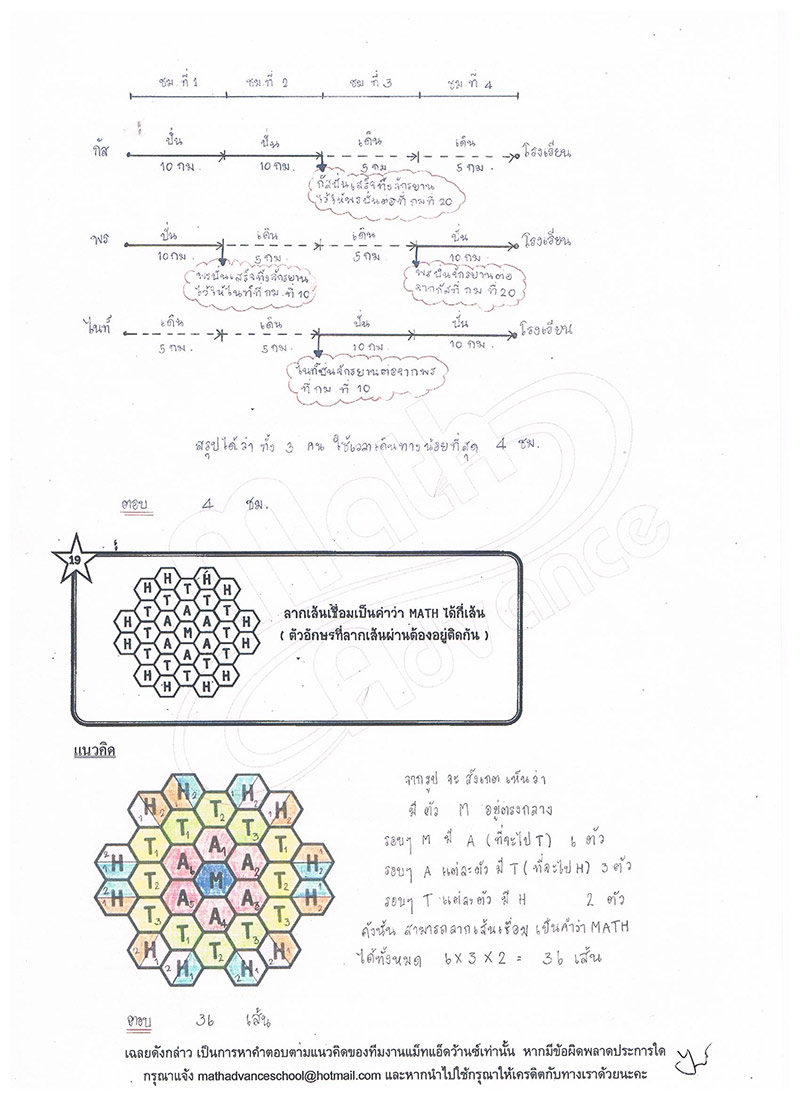 ชม.ที่ 1 ชม.ที่ 2 ชม.ที่ 3 ชม.ที่ 4
กัส ปั่น ปั่น เดิน เดิน โรงเรียน
10 กม. 10 กม. 5 กม. 5 กม.
กัสปั่นเสร็จทิ้งจักรยาน
ไว้ให้พรปั่นต่อที่ กม.ที่ 20
พร ปั่น เดิน เดิน ปั่น โรงเรียน
10 กม. 5 กม. 5 กม. 10 กม.
พรปั่นเสร็จทิ้งจักรยาน
ไว้ให้ไนท์ที่ กม. ที่ 10
พรปั่นจักรยานต่อ
จากกัสที่ กม. ที่ 20
ไนท์ เดิน เดิน ปั่น ปั่น โรงเรียน
5 กม. 5 กม. 10 กม. 10 กม.
ไนท์ปั่นจักรยานต่อจากพร
ที่ กม. ที่ 10
สรุปได้ว่า ทั้ง 3 คน ใช้เวลาเดินทางน้อยที่สุด 4 ชม.
ตอบ 4 ชม.
19
H H
H T T H
H T A T H
H T A A T H
T A M A T
H T A A T H
H T A T H
H T T H
H H
ลากเส้นเชื่อมเป็นคำว่า MATH ได้กี่เส้น
( ตัวอักษรที่ลากเส้นผ่านต้องอยู่ติดกัน )
แนวคิด
จากรูป จะ สังเกตเห็นว่า
มี ตัว M อยู่ตรงกลาง
รอบๆ M มี A (ที่จะไป T) 6 ตัว
รอบๆ A แต่ละตัว มี T (ที่จะไป H) 3 ตัว
รอบๆ T แต่ละตัว มี H 2 ตัว
ดังนั้น สามารถลากเส้นเชื่อม เป็นคำว่า MATH
ได้ทั้งหมด 6 x 3 x 2 = 36 เส้น
ตอบ 36 เส้น
เฉลยดังกล่าว เป็นการหาคำตอบตามแนวคิดของทีมงานแม็ทแอ็ดว้านซ์เท่านั้น หากมีข้อผิดพลาดประการใด
กรุณาแจ้ง mathadvanceschool@hotmail.com และหากนำไปใช้กรุณาให้เครดิตกับทางเราด้วยนะคะ
Math
Advance